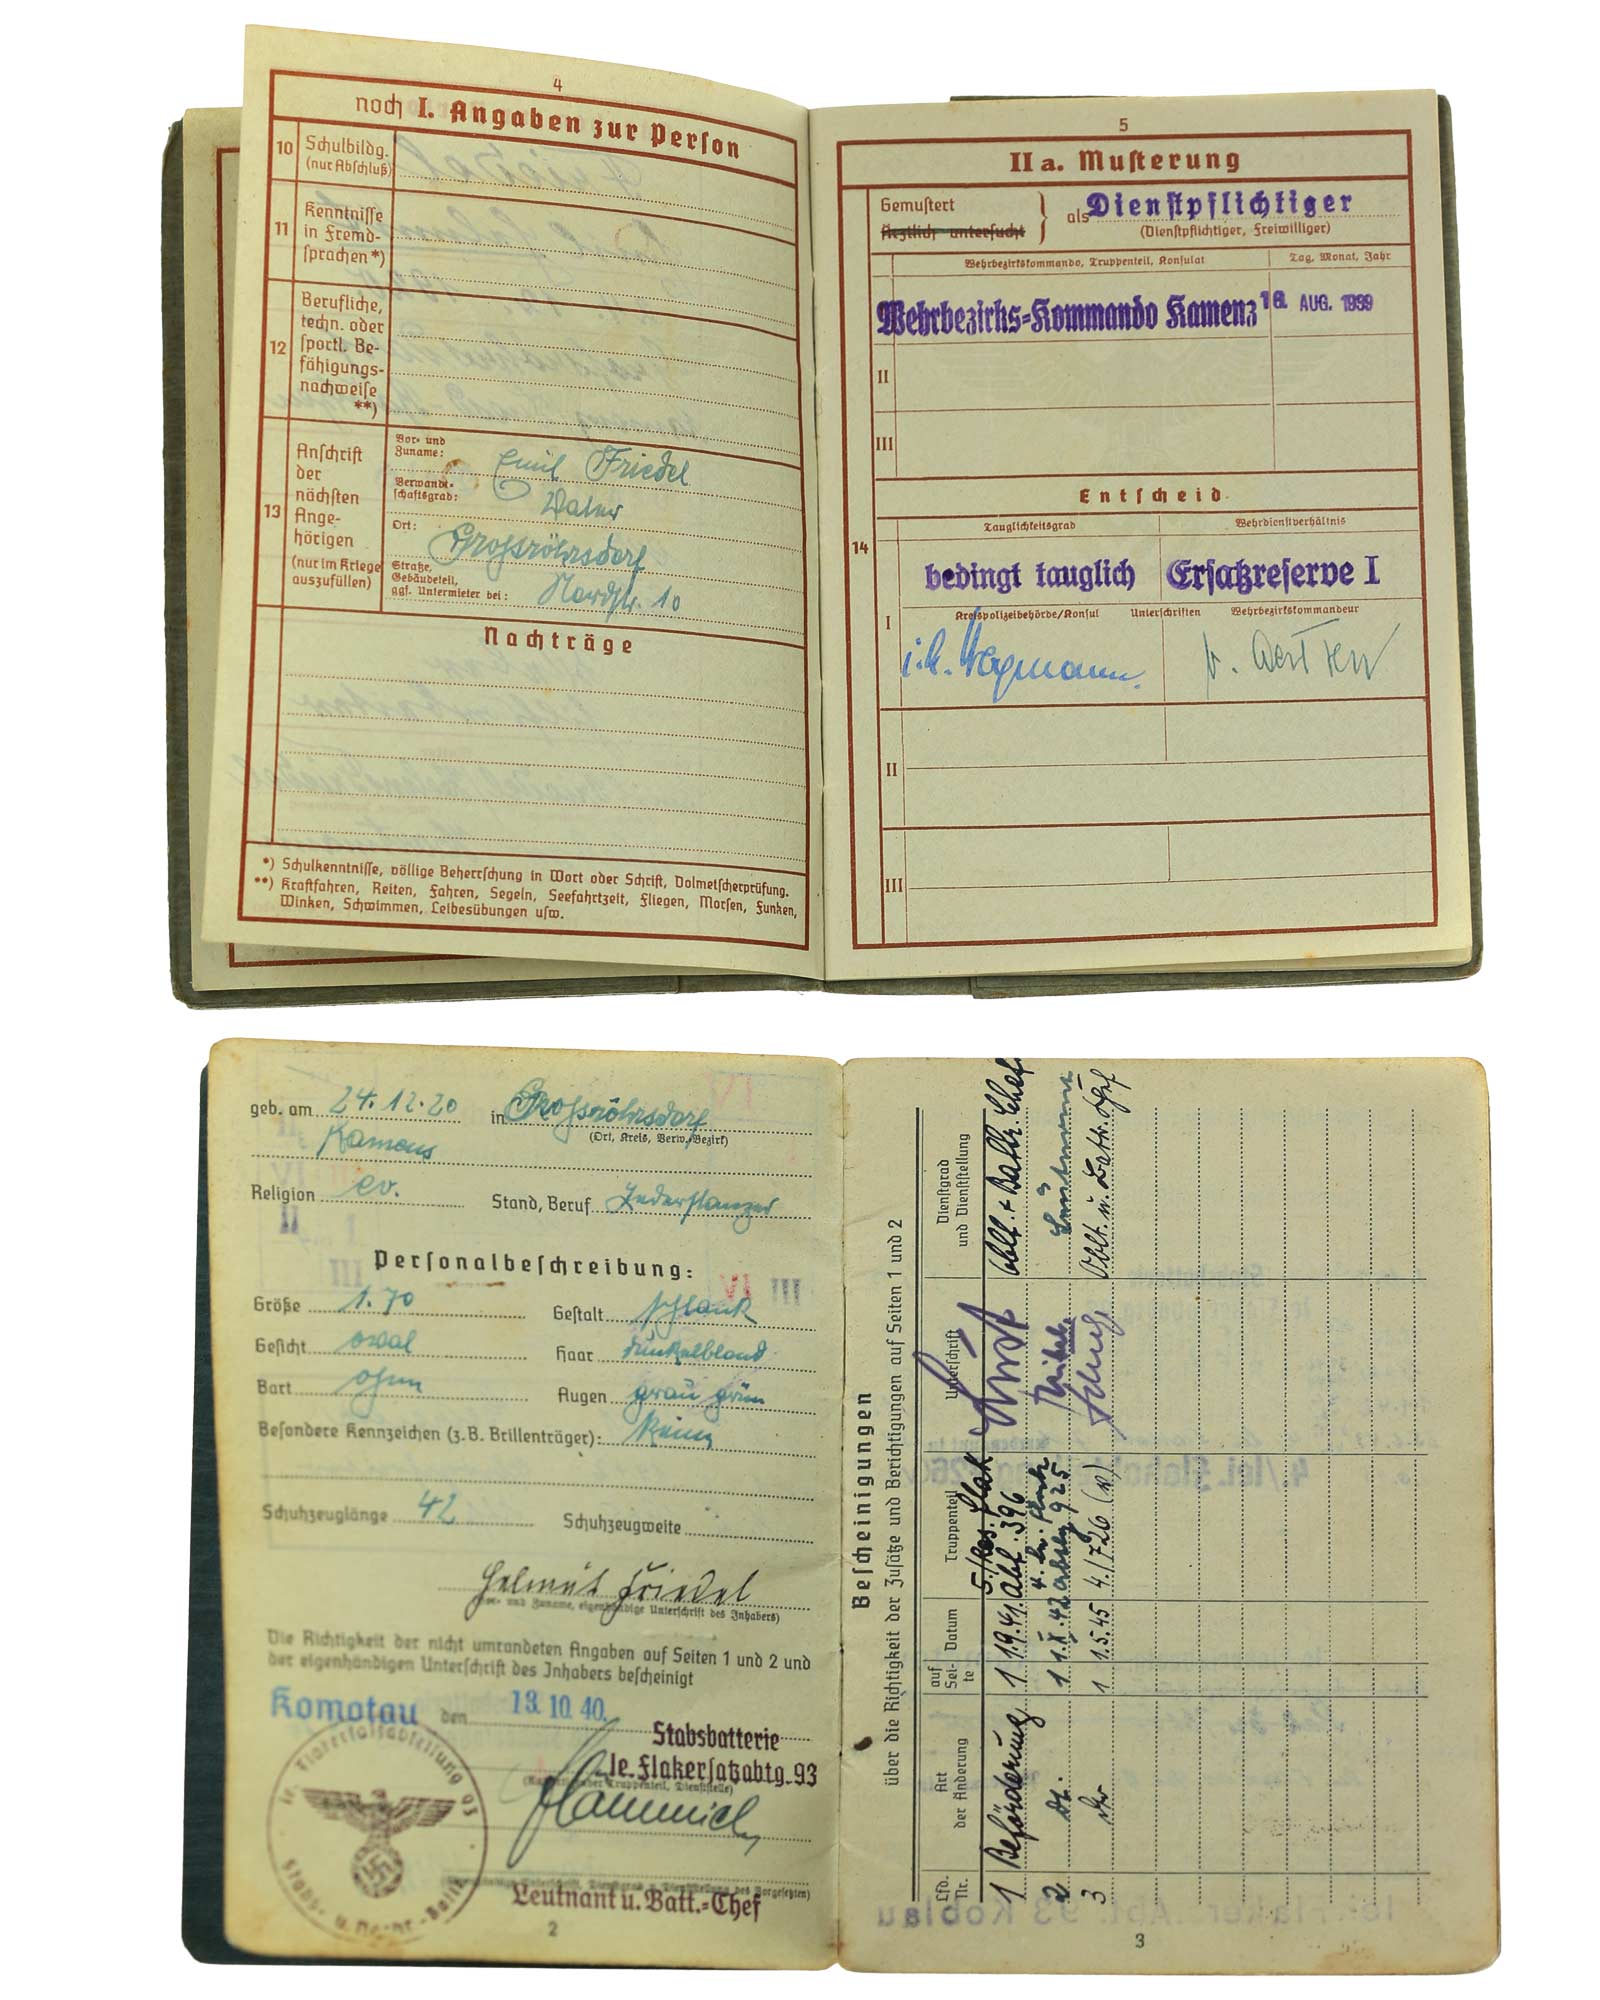 4
noch I. Angaben zur Person
10 Schulbildg.
(nur Abschluß)
11 Kenntnisse
in Fremd-
sprachen *)
12 Berufliche,
techn. oder
sportl. Be-
fähigungs-
nachweise
**)
13 Anschrift
der
nächsten
Ange-
hörigen
(nur im Kriege
auszufüllen)
Vor- und
Zuname: Emil Friedel
Verwandt-
schaftsgrad: Vater
Ort: Großröhrsdorf
Straße,
Gebäudeteil,
ggf. Untermieter bei: Nordstr. 10
Nachträge
*) Schulkenntnisse, völlige Beherrschung in Wort oder Schrift, Dolmetscherprüfung.
**) Kraftfahren, Reiten, Fahren, Segeln, Seefahrtzeit, Fliegen, Morsen, Funken,
Winken, Schwimmen, Leibesübungen usw.
5
II a. Musterung
Gemustert
Ärztlich untersucht
als Dienstpflichtiger
(Dienstpflichtiger, Freiwilliger)
Wehrbezirkskommando, Truppenteil, Konsulat Tag, Monat, Jahr
Wehrbezirks-Kommando Kamenz 16. AUG. 1939
II
III
Entscheid
14
Tauglichkeitsgrad Wehrdienstverhältnis
I bedingt tauglich Ersatzreserve I
Kreispolizeibehörde/Konsul Unterschriften Wehrbezirkskommandeur
i.A. Wegmann.
II
III
geb. am 24.12.20 in Großröhrsdorf
(Ort, Kreis, Verw.-Bezirk)
Kamenz
Religion ev. Stand, Beruf
Personalbeschreibung:
Größe 1.70 Gestalt schlank
Gesicht oval Haar dunkelblond
Bart ohne Augen grau grün
Besondere Kennzeichen (z.B. Brillenträger): keine
Schuhzeuglänge 42 Schuhzeugweite
Helmut Friedel
(Vor- und Zuname, eigenhändige Unterschrift des Inhabers)
Die Richtigkeit der nicht umrandeten Angaben auf Seiten 1 und 2 und
der eigenhändigen Unterschrift des Inhabers bescheinigt
Komotau den 13.10.40.
Stabsbatterie
le. Flakersatzabtg. 93
Leutnant u. Batt.-Chef
2
Bescheinigungen
über die Richtigkeit der Zusätze und Berichtigungen auf Seiten 1 und 2
Lfd. Nr. Art der Änderung auf Sei-te Datum Truppenteil Unterschrift Dienstgrad und Dienststellung
1 Beförderung 1 1.9.41. 5./Res. Flak Abt. 396 Oblt. + Battr. Chef
2 1 1.X.42 925 Leutnant
3 1 1.5.45 4./726 (v) Oblt. u. Battr. Chef
le. Flakers. Abt. 93 Koblau
3